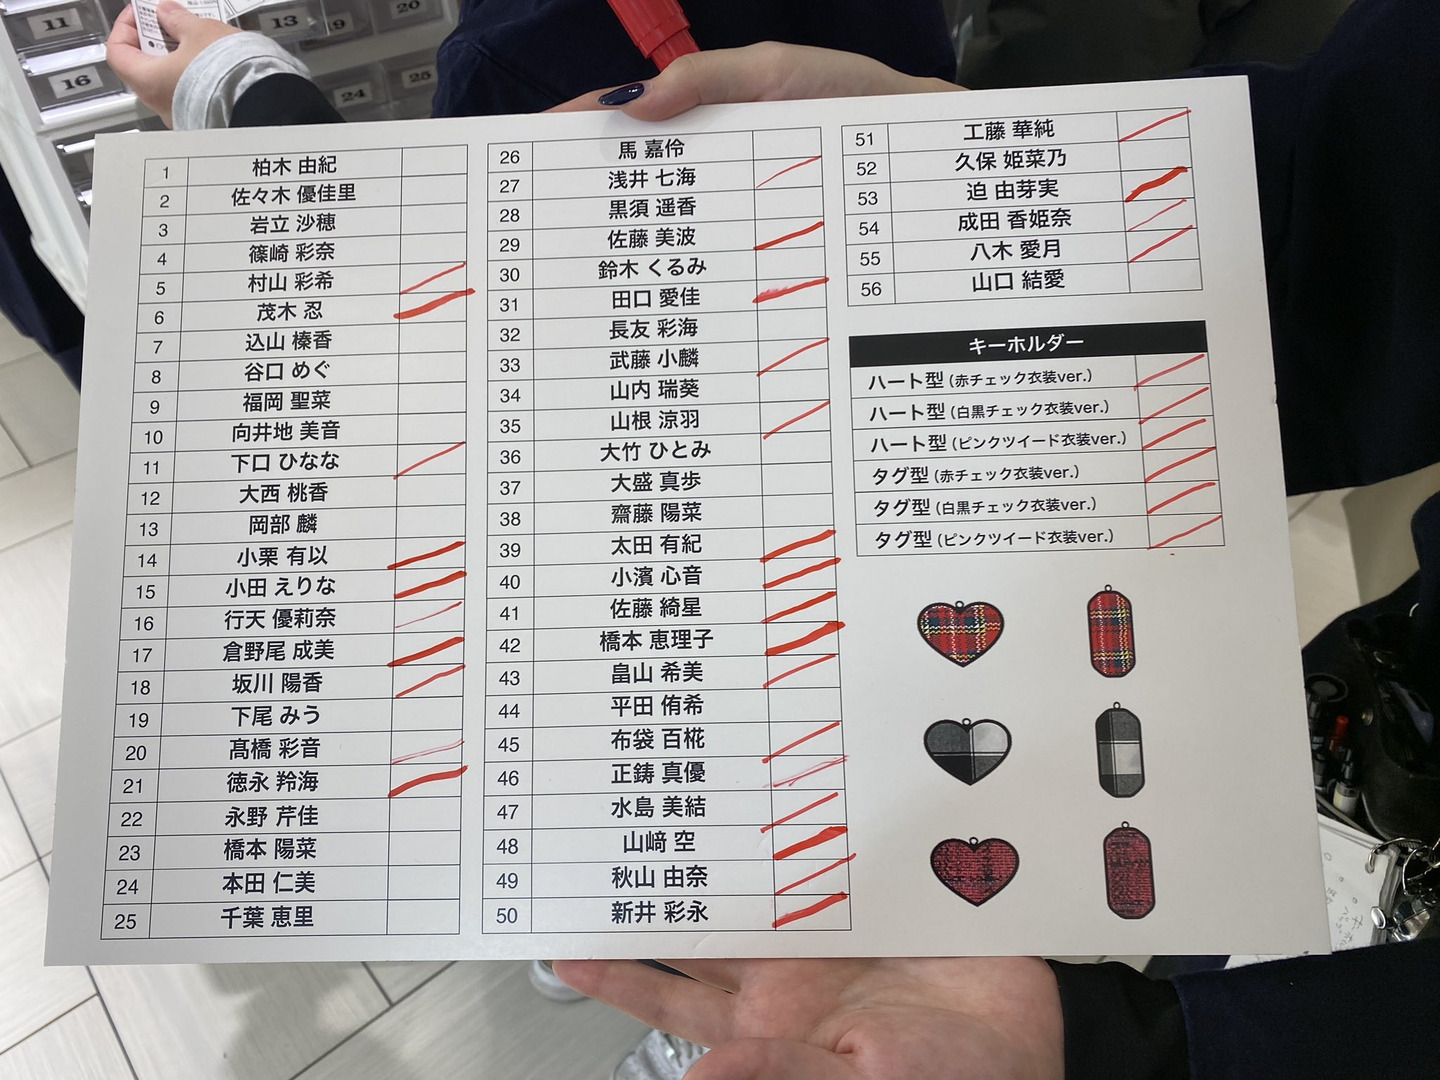 11
13
9
20
16
24
25
1 柏木 由紀
2 佐々木 優佳里
3 岩立 沙穂
4 篠崎 彩奈
5 村山 彩希
6 茂木 忍
7 込山 榛香
8 谷口 めぐ
9 福岡 聖菜
10 向井地 美音
11 下口 ひなな
12 大西 桃香
13 岡部 麟
14 小栗 有以
15 小田 えりな
16 行天 優莉奈
17 倉野尾 成美
18 坂川 陽香
19 下尾 みう
20 髙橋 彩音
21 徳永 羚海
22 永野 芹佳
23 橋本 陽菜
24 本田 仁美
25 千葉 恵里
26 馬 嘉伶
27 浅井 七海
28 黒須 遥香
29 佐藤 美波
30 鈴木 くるみ
31 田口 愛佳
32 長友 彩海
33 武藤 小麟
34 山内 瑞葵
35 山根 涼羽
36 大竹 ひとみ
37 大盛 真歩
38 齋藤 陽菜
39 太田 有紀
40 小濱 心音
41 佐藤 綺星
42 橋本 恵理子
43 畠山 希美
44 平田 侑希
45 布袋 百椛
46 正鋳 真優
47 水島 美結
48 山﨑 空
49 秋山 由奈
50 新井 彩永
51 工藤 華純
52 久保 姫菜乃
53 迫 由芽実
54 成田 香姫奈
55 八木 愛月
56 山口 結愛
キーホルダー
ハート型 (赤チェック衣装ver.)
ハート型 (白黒チェック衣装ver.)
ハート型 (ピンクツイード衣装ver.)
タグ型 (赤チェック衣装ver.)
タグ型 (白黒チェック衣装ver.)
タグ型 (ピンクツイード衣装ver.)